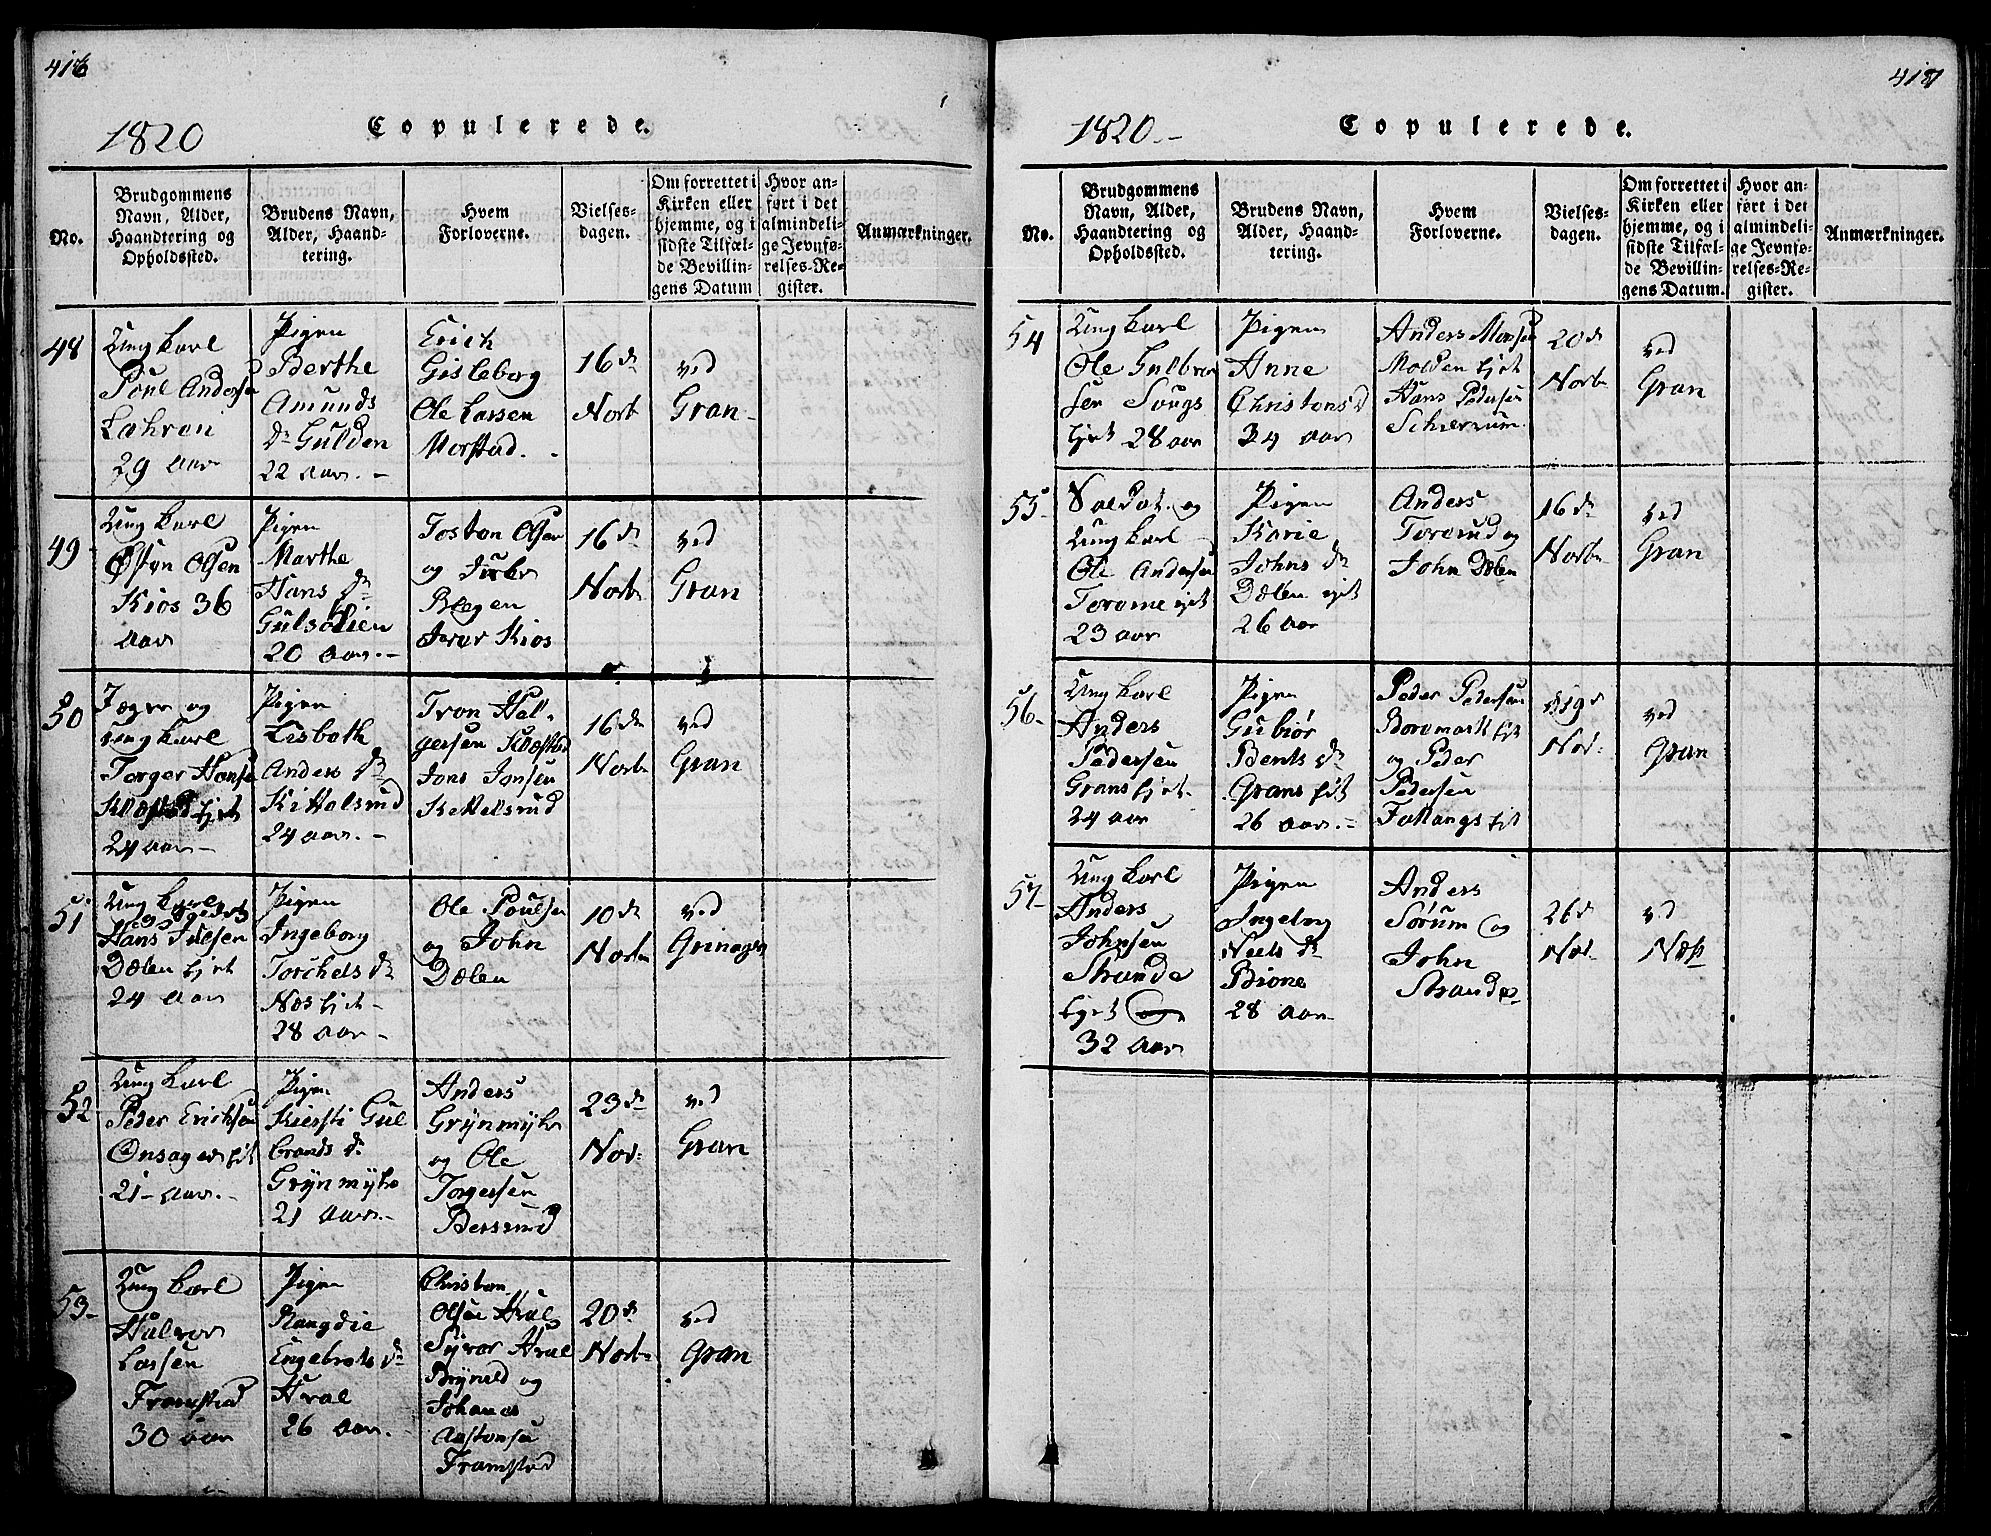 416
1820
Copulerede.
No.
Brudgommens
Navn, Alder,
Haandtering og
Opholdssted.
Brudens Navn,
Alder, Haand-
tering.
Hvem
Forloverne.
Vielses-
dagen.
Om forrettet i
Kirken eller
hjemme, og i
sidste Tilfæl-
de Bevillin-
gens Datum
Hvor an-
ført i det
almindeli-
ge Jevnfø-
relses-Re-
gister.
Anmærkninger.
48
Ung karl
Poul Anderse
Lahren
29 aar
Pigen
Berthe
Amunds
dr Gulden
22 aar. -
Erich
Gisleborg
Ole Larsen
Morstad. -
16 dn
Novb
ved
Gran -
49
Ung karl
Østen Olsen
Kios 36
aar
Pigen
Marthe
Hans dr
Gulsølien
20 aar. -
Tosten Olsen
og
Blegen
Iver Kios
16 dn
Novbr
ved
Gran
50
Jæger og
ung karl
Torger Hanse
Kløfsted Ejet
24 aar -
Pigen
Lisbeth
Anders dr
Kittelsrud
24 aar. -
Tron Hel-
gersen Kløfsted
Jens Jensen
Kettelsrud
16 dn
Novbr
ved
Gran
51
Ung karl
Hans
Dælen Ejet
24 aar
Pigen
Ingeborg
Torchels dr
Næs Ejet -
28 aar -
Ole Poulsen
og John
Dælen
10 dn
Novbr
ved
Grinager
52
Ung karl
Peder Ericksen
Onsager Ejt
21 - aar. -
Pigen
Kiersti Gul
brands dr
Grÿnmÿhr
21 aar. -
Anders
Grÿnmÿhr
og Ole
Torgersen
Bersrud
23 dn
Nov:
ved
Gran
53 -
Ung karl
Halvor
Larsen
Framstad
30 aar
Pigen
Rangdie
Engebrets dr
Hval
26 aar. -
Christen
Olsen Hval
Syver Hval
og
Johanes
Framstad
20 dn
Novbr
ved
Gran
417
1820 -
Copulerede.
No.
Brudgommens
Navn, Alder,
Haandtering og
Opholdssted.
Brudens Navn,
Alder, Haand-
tering.
Hvem
Forloverne.
Vielses-
dagen.
Om forrettet i
Kirken eller
hjemme, og i
sidste Tilfæl-
de Bevillin-
gens Datum.
Hvor an-
ført i det
almindeli-
ge Jevnfø-
relses-Re-
gister.
Anmærkninger.
54
Ung karl
Ole Gulbran
sen Sougs
Ejet 28 aar
Pigen
Anne
Christensd
34 aar
Anders Monsen
Molden Ejet
Hans Pedersen
Schierrum
20 d
Novbr
ved
Gran
55 -
Soldat og
Ung karl
Ole Andersen
Ejet
23 aar
Pigen
Karie
Johns dr
Dælen Ejet
26 aar
Anders
Torerud og
John Dælen
16 dn
Novbr
ved
Gran
56 -
Ung karl
Anders
Pedersen
Grans Ejet -
24 aar
Pigen
Gubiør
Bents dr
Grans Ejt
26 aar. -
Peder Pedersen
Ejt
og Peder
Pedersen
Fallangs Ejt
19 d
Nov:
ved
Gran
57 -
Ung karl
Anders
Johnsen
Strande
Ejet og
32 aar
Pigen
Ingeborg
Neels dr
Brøne
28 aar
Anders
Sørum og
John
Strande
26 d
Nov -
ved
Næs